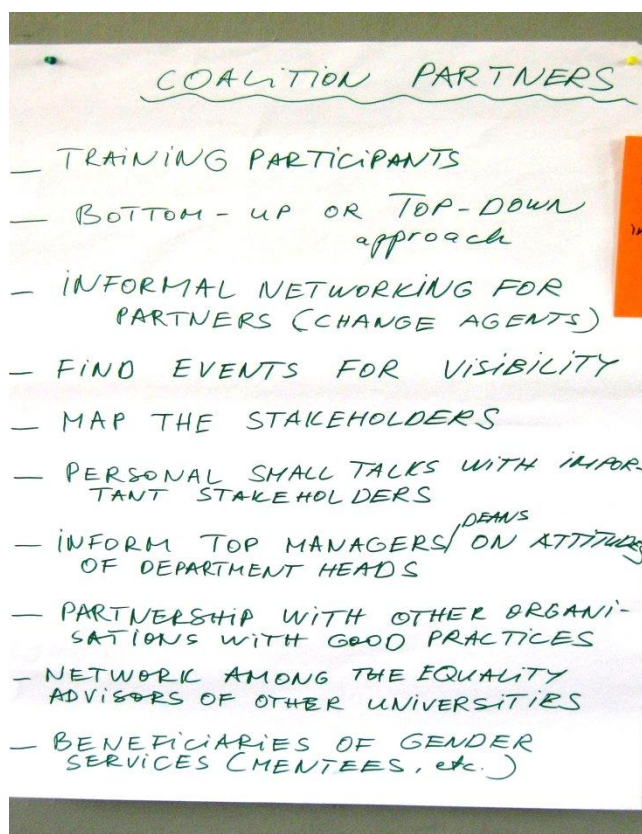 COALITION PARTNERS
— TRAINING PARTICIPANTS
— BOTTOM-UP OR TOP-DOWN
approach
— INFORMAL NETWORKING FOR
PARTNERS (CHANGE AGENTS)
— FIND EVENTS FOR VISIBILITY
— MAP THE STAKEHOLDERS
— PERSONAL SMALL TALKS WITH IMPOR-
TANT STAKEHOLDERS
— INFORM TOP MANAGERS/DEANS ON ATTITUDES
OF DEPARTMENT HEADS
— PARTNERSHIP WITH OTHER ORGANI-
SATIONS WITH GOOD PRACTICES
— NETWORK AMONG THE EQUALITY
ADVISORS OF OTHER UNIVERSITIES
— BENEFICIARIES OF GENDER
SERVICES (MENTEES, etc.)